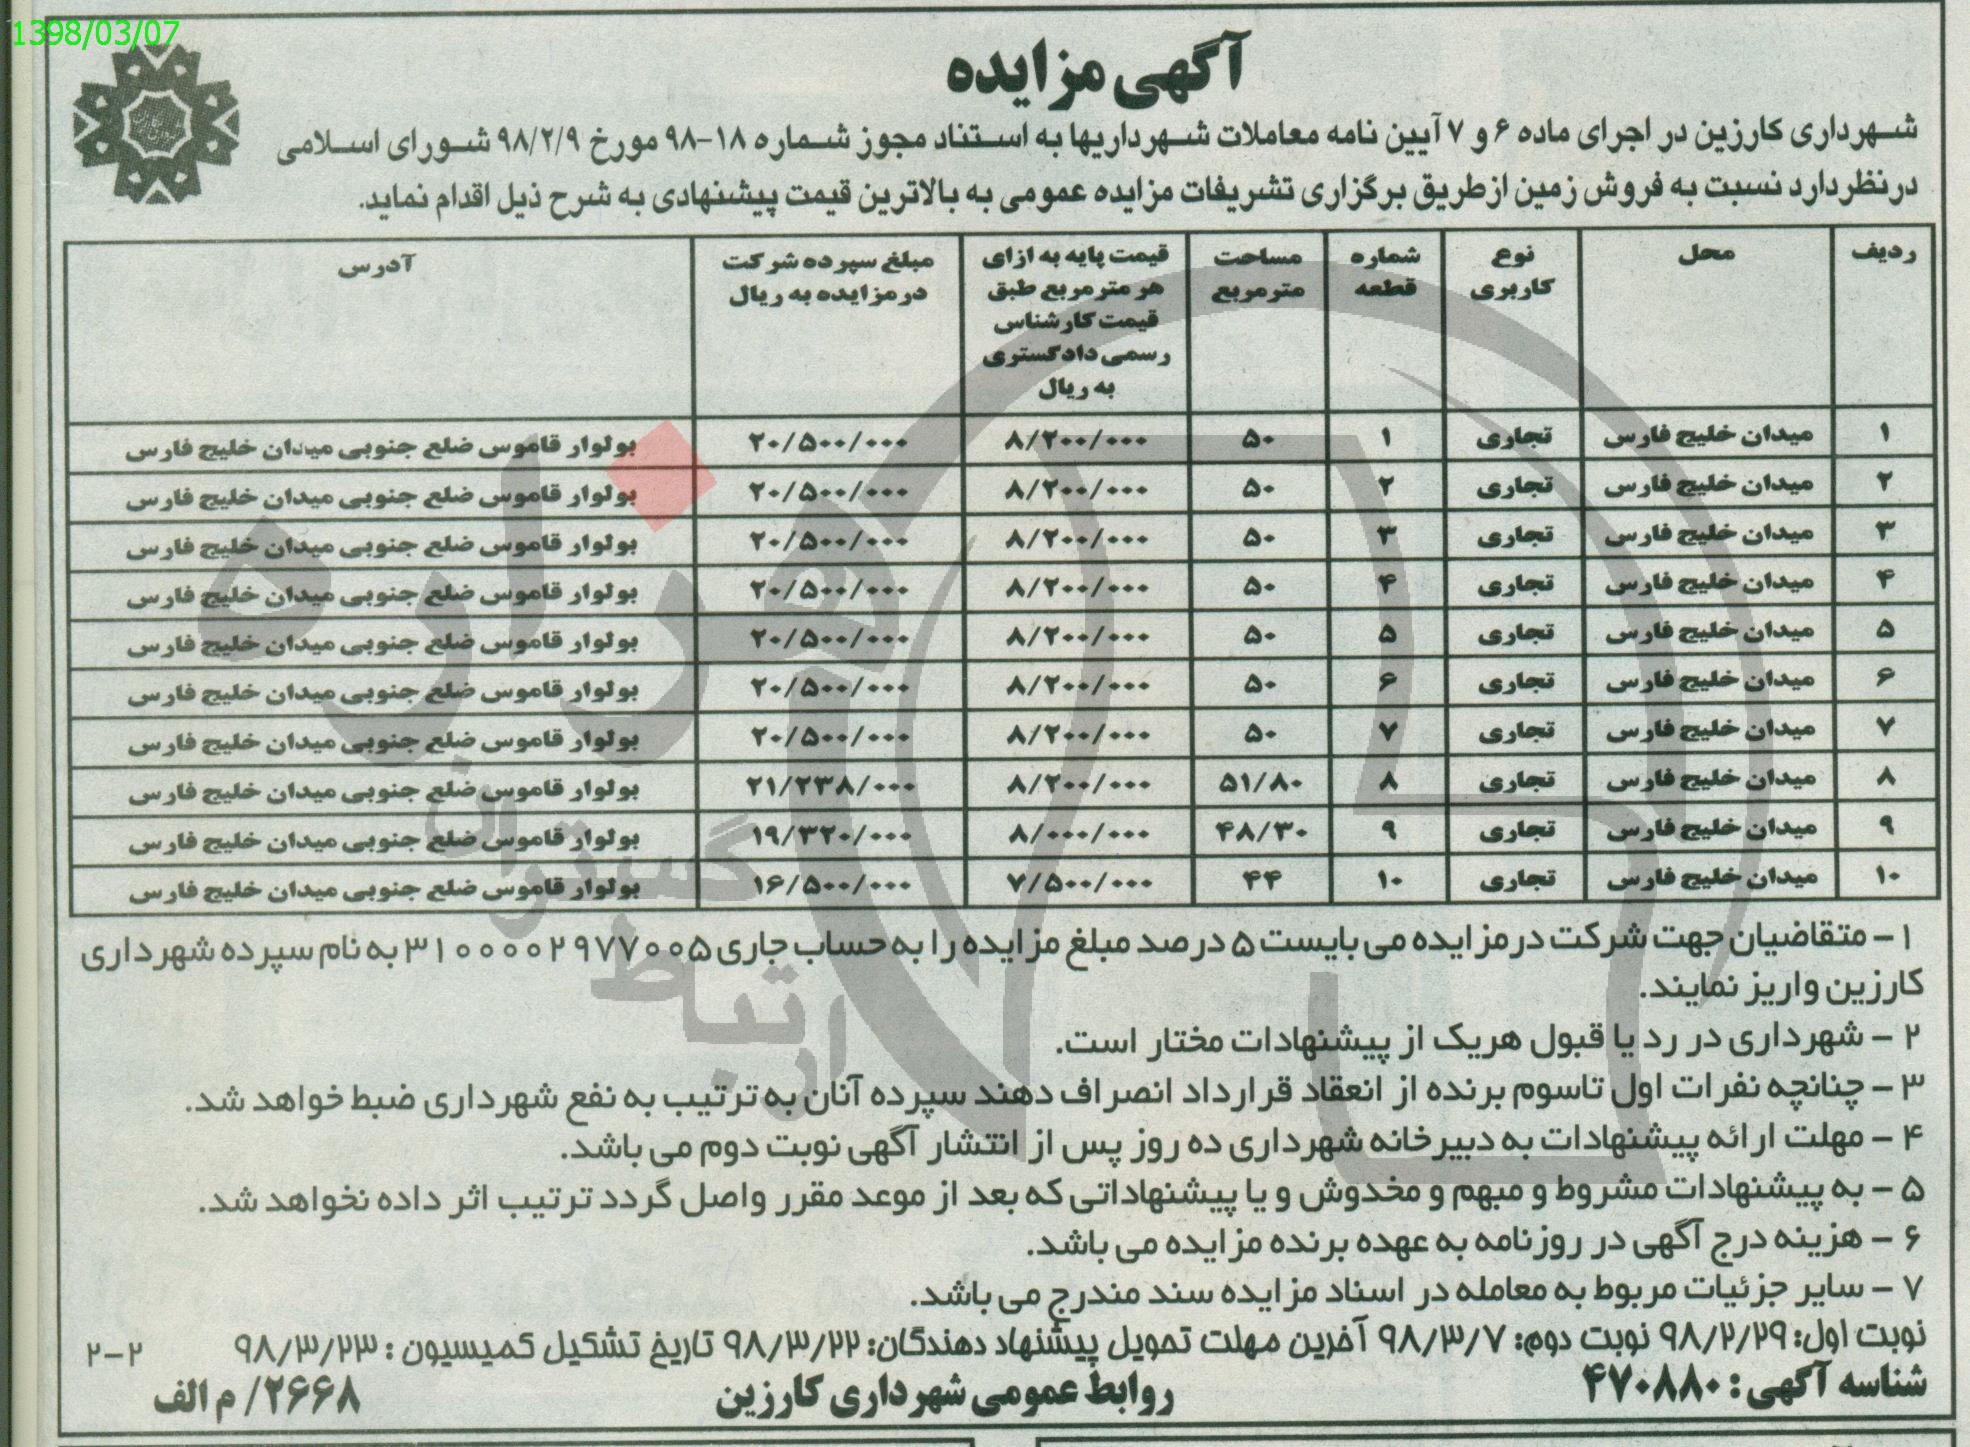 1398/03/07
آگهی مزایده
شهرداری کارزین در اجرای ماده ۶ و ۷ آیین نامه معاملات شهرداریها به استناد مجوز شماره ۱۸-۹۸ مورخ ۹۸/۲/۹ شورای اسلامی
درنظردارد نسبت به فروش زمین ازطریق برگزاری تشریفات مزایده عمومی به بالاترین قیمت پیشنهادی به شرح ذیل اقدام نماید.
ردیف محل نوع کاربری شماره قطعه مساحت مترمربع قیمت پایه به ازای هر مترمربع طبق قیمت کارشناس رسمی دادگستری به ریال مبلغ سپرده شرکت درمزایده به ریال آدرس
۱ میدان خلیج فارس تجاری ۱ ۵۰ ۸/۲۰۰/۰۰۰ ۲۰/۵۰۰/۰۰۰ بولوار قاموس ضلع جنوبی میدان خلیج فارس
۲ میدان خلیج فارس تجاری ۲ ۵۰ ۸/۲۰۰/۰۰۰ ۲۰/۵۰۰/۰۰۰ بولوار قاموس ضلع جنوبی میدان خلیج فارس
۳ میدان خلیج فارس تجاری ۳ ۵۰ ۸/۲۰۰/۰۰۰ ۲۰/۵۰۰/۰۰۰ بولوار قاموس ضلع جنوبی میدان خلیج فارس
۴ میدان خلیج فارس تجاری ۴ ۵۰ ۸/۲۰۰/۰۰۰ ۲۰/۵۰۰/۰۰۰ بولوار قاموس ضلع جنوبی میدان خلیج فارس
۵ میدان خلیج فارس تجاری ۵ ۵۰ ۸/۲۰۰/۰۰۰ ۲۰/۵۰۰/۰۰۰ بولوار قاموس ضلع جنوبی میدان خلیج فارس
۶ میدان خلیج فارس تجاری ۶ ۵۰ ۸/۲۰۰/۰۰۰ ۲۰/۵۰۰/۰۰۰ بولوار قاموس ضلع جنوبی میدان خلیج فارس
۷ میدان خلیج فارس تجاری ۷ ۵۰ ۸/۲۰۰/۰۰۰ ۲۰/۵۰۰/۰۰۰ بولوار قاموس ضلع جنوبی میدان خلیج فارس
۸ میدان خلیج فارس تجاری ۸ ۵۱/۸۰ ۸/۲۰۰/۰۰۰ ۲۱/۲۳۸/۰۰۰ بولوار قاموس ضلع جنوبی میدان خلیج فارس
۹ میدان خلیج فارس تجاری ۹ ۴۸/۳۰ ۸/۰۰۰/۰۰۰ ۱۹/۳۲۰/۰۰۰ بولوار قاموس ضلع جنوبی میدان خلیج فارس
۱۰ میدان خلیج فارس تجاری ۱۰ ۴۴ ۷/۵۰۰/۰۰۰ ۱۶/۵۰۰/۰۰۰ بولوار قاموس ضلع جنوبی میدان خلیج فارس
۱ - متقاضیان جهت شرکت درمزایده می بایست ۵ درصد مبلغ مزایده را به حساب جاری ۳۱۰۰۰۰۲۹۷۷۰۰۵ به نام سپرده شهرداری
کارزین واریز نمایند.
۲ - شهرداری در رد یا قبول هریک از پیشنهادات مختار است.
۳ - چنانچه نفرات اول تاسوم برنده از انعقاد قرارداد انصراف دهند سپرده آنان به ترتیب به نفع شهرداری ضبط خواهد شد.
۴ - مهلت ارائه پیشنهادات به دبیرخانه شهرداری ده روز پس از انتشار آگهی نوبت دوم می باشد.
۵ - به پیشنهادات مشروط و مبهم و مخدوش و یا پیشنهاداتی که بعد از موعد مقرر واصل گردد ترتیب اثر داده نخواهد شد.
۶ - هزینه درج آگهی در روزنامه به عهده برنده مزایده می باشد.
۷ - سایر جزئیات مربوط به معامله در اسناد مزایده سند مندرج می باشد.
نوبت اول: ۹۸/۲/۲۹ نوبت دوم: ۹۸/۳/۷ آخرین مهلت تحویل پیشنهاد دهندگان: ۹۸/۳/۲۲ تاریخ تشکیل کمیسیون : ۹۸/۳/۲۳ ۲-۲
شناسه آگهی : ۴۷۰۸۸۰ روابط عمومی شهرداری کارزین ۲۶۶۸/ م الف
هزاره
گستران
ارتباط